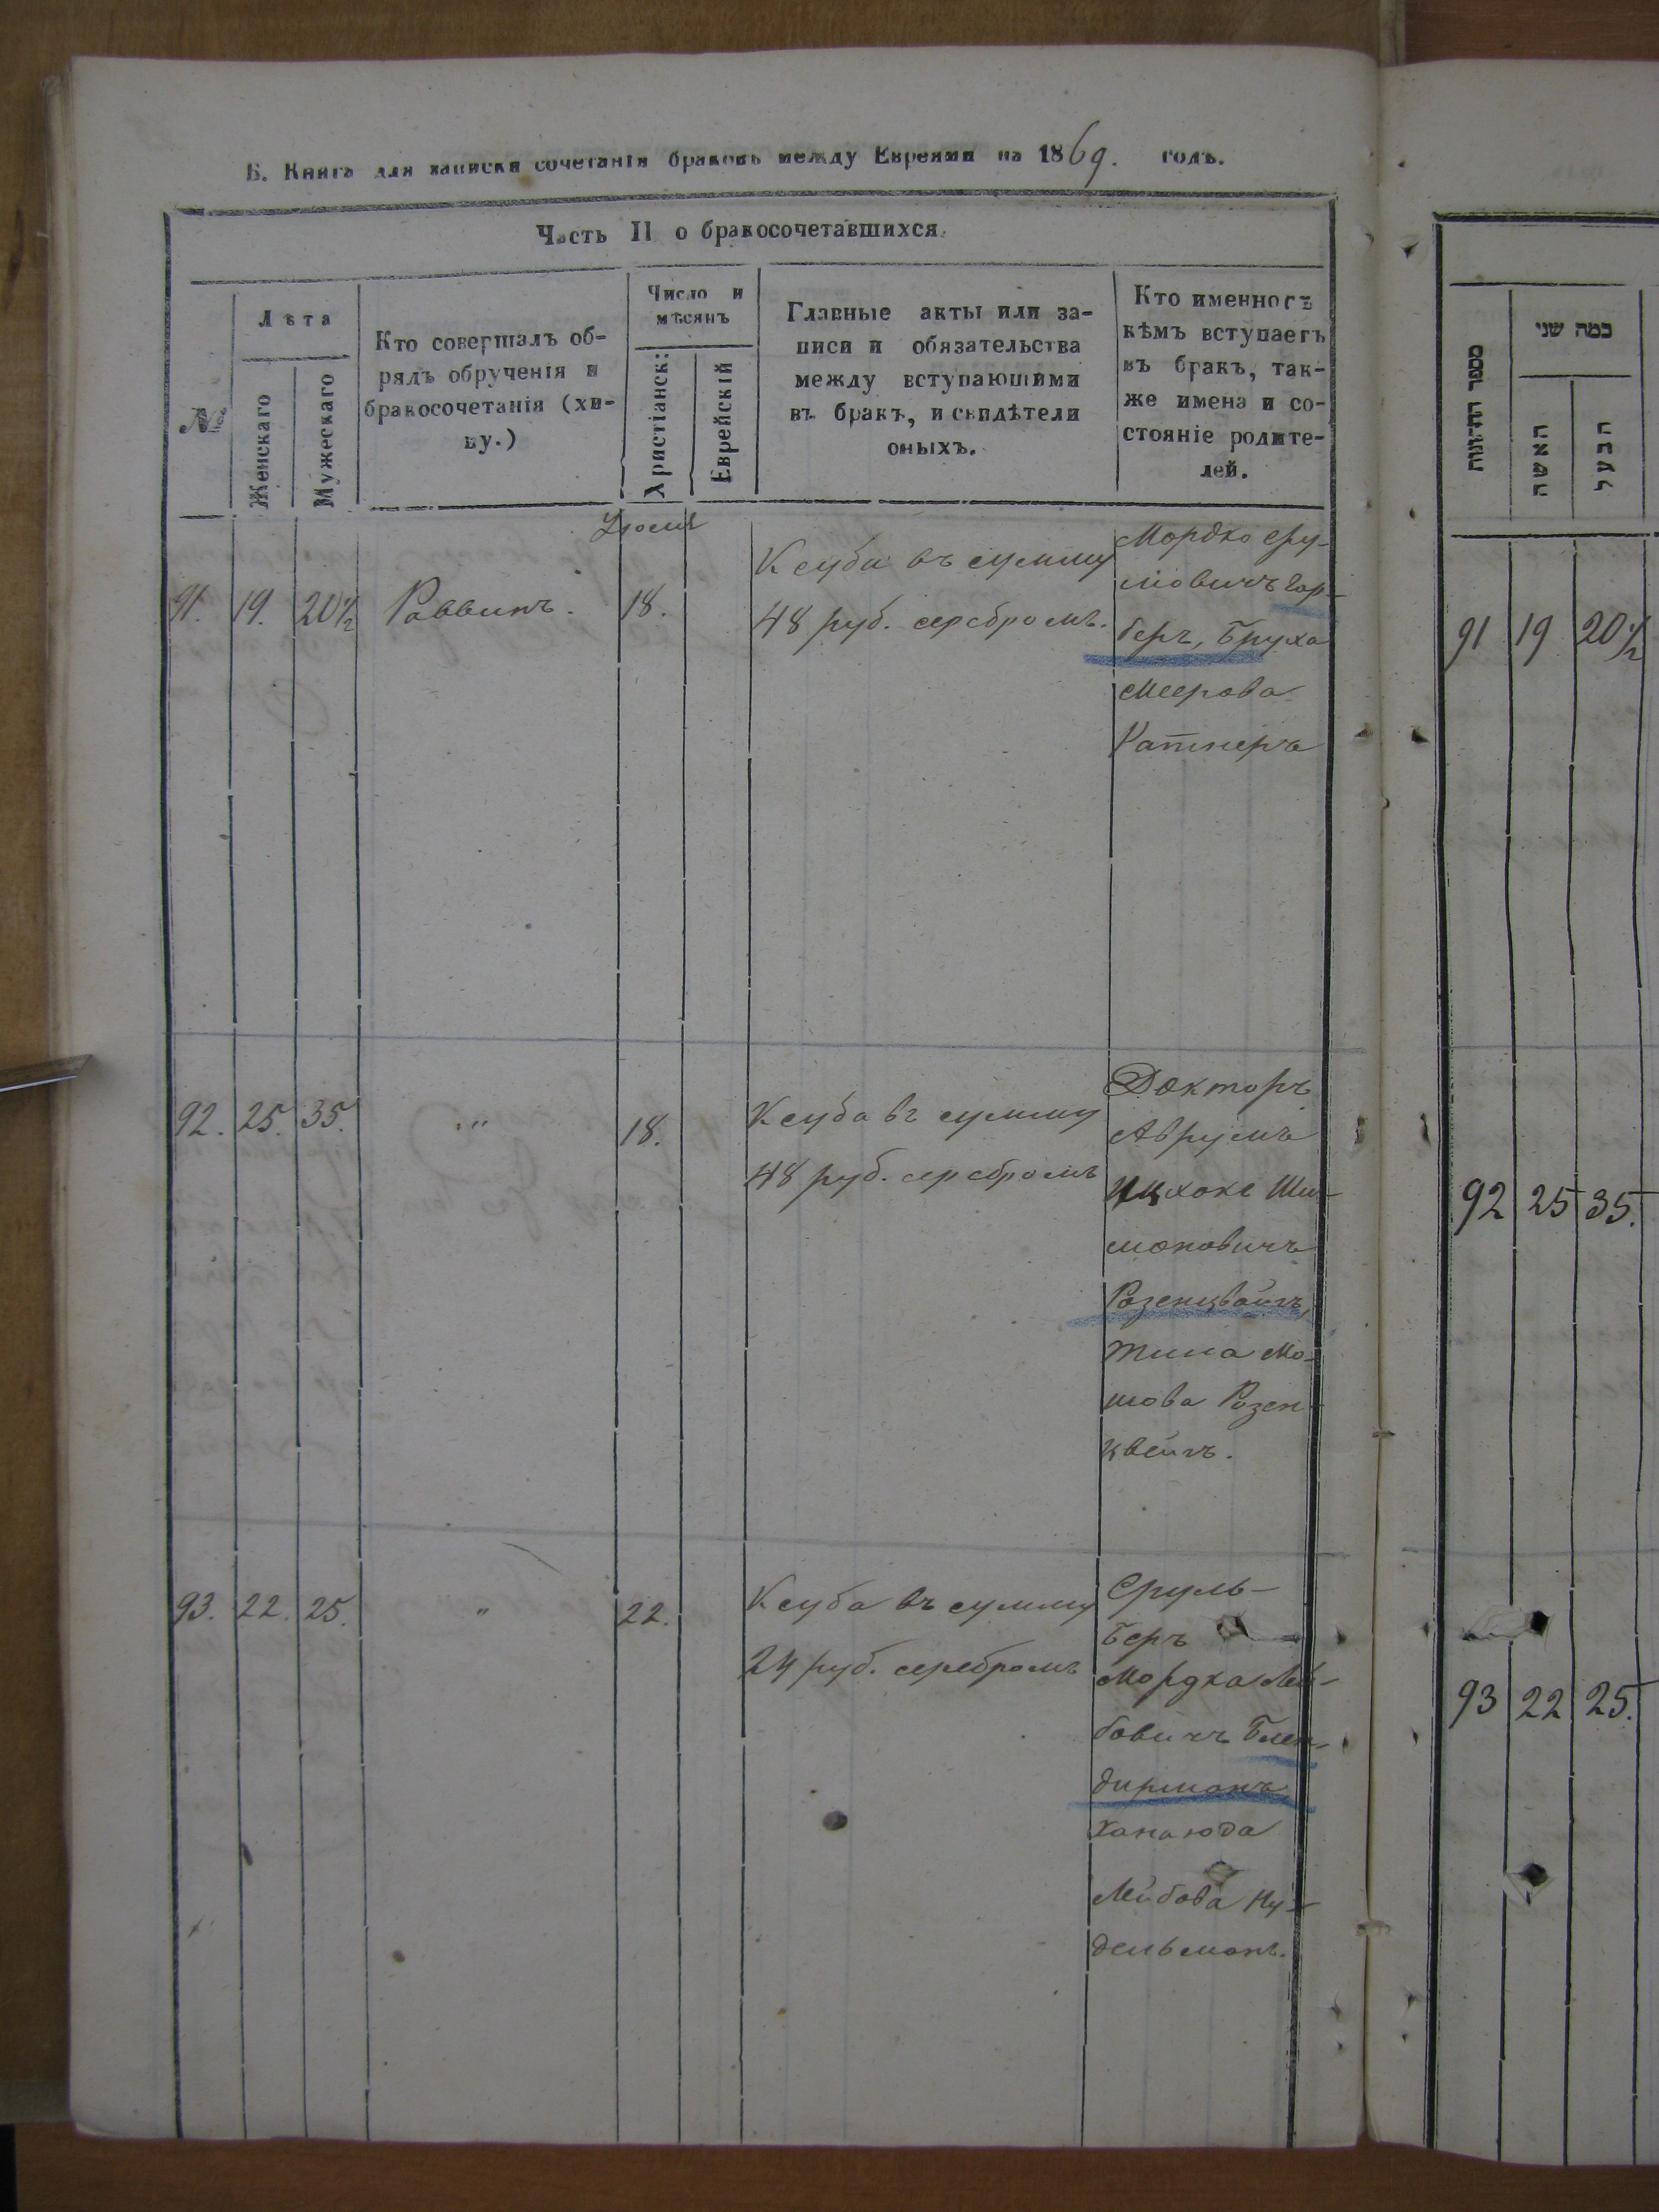 Б. Книга для записки сочетанія браковъ между Евреями на 1869. годъ.
Часть II о бракосочетавшихся.
№
Лѣта
Женскаго
Мужескаго
Кто совершалъ об-
рядъ обрученія и
бракосочетанія (хи-
пу.)
Число и
мѣсяцъ
Христіанск:
Еврейскій
Главные акты или за-
писи и обязательства
между вступающими
въ бракъ, и свидѣтели
оныхъ.
Кто именно съ
кѣмъ вступаетъ
въ бракъ, так-
же имена и со-
стояніе родите-
лей.
Іюня
91. 19. 20½ Раввинъ. 18.
Ксуба въ сумму
48 руб. серебромъ.
Мордко Сру-
ліовичъ Гор-
беръ, Бруха
Меерова
Ратнеръ
92. 25. 35. " 18.
Ксуба въ сумму
48 руб. серебромъ
Докторъ
Аврумъ
Ицхокъ Ши-
моновичъ
Розенцвайгъ,
Мо-
шова Розен-
цвейгъ.
93. 22. 25. " 22.
Ксуба въ сумму
24 руб. серебромъ
Сруль-
Беръ
Мордка Лей-
бовичъ Блен-
дирманъ
Хана юда
Лейбова Ну-
дельманъ.
מספר החתונות
כמה שני
האשה
הבעל
91 19 20½
92 25 35.
93 22 25.